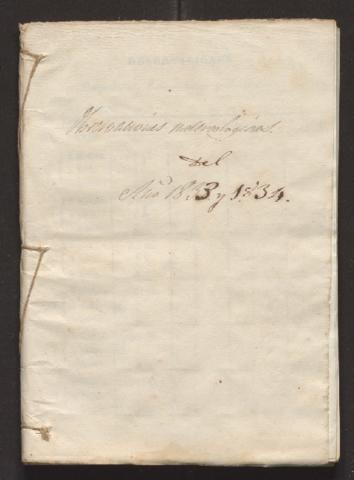 Observaciones meteorologicas.
del
Año 1833 y 1834.